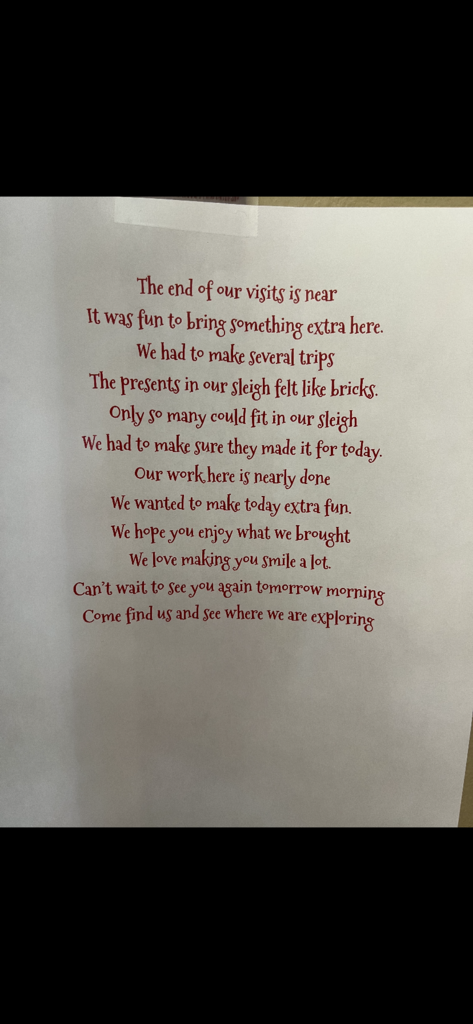 The end of our visits is near
It was fun to bring something extra here.
We had to make several trips
The presents in our sleigh felt like bricks.
Only so many could fit in our sleigh
We had to make sure they made it for today.
Our work here is nearly done
We wanted to make today extra fun.
We hope you enjoy what we brought
We love making you smile a lot.
Can't wait to see you again tomorrow morning
Come find us and see where we are exploring